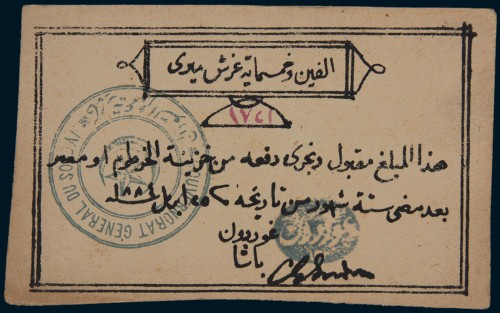 الفين وخمسماية غرش ميرى
١٧٤١
هذا المبلغ مقبول وتجرى دفعه من خزينة الخرطوم او مصر
بعد مضى ستة شهور من تاريخه ٢٥ ابريل سنة ١٨٨٤
غوردون
باشا
GOUVERNORAT GENERAL DU SOUDAN